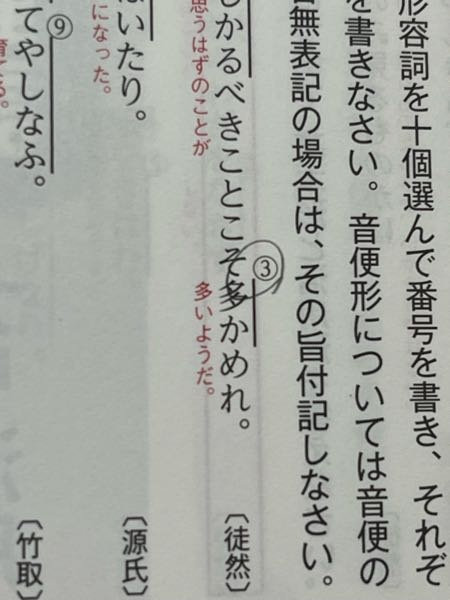 形容詞を十個選んで番号を書き、それぞ
を書きなさい。音便形については音便の
無表記の場合は、その旨付記しなさい。
③
しかるべきことこそ多かめれ。〔徒然〕
思うはずのことが
多いようだ。
いたり。〔源氏〕
になった。
⑨
てやしなふ。〔竹取〕
育てる。